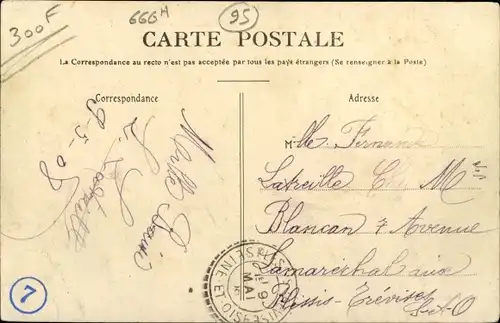 300F
666A
95
CARTE POSTALE
La Correspondance au recto n'est pas acceptée par tous les pays étrangers (Se renseigner à la Poste)
Correspondance
Adresse
9-5-08
Mlle Fernande
Latreille Chez Mr
Blancan 7 Avenue
Lamaréchal aux
Plessis-Trévises
S-et-O
SEINE ET OISE
MAI
7